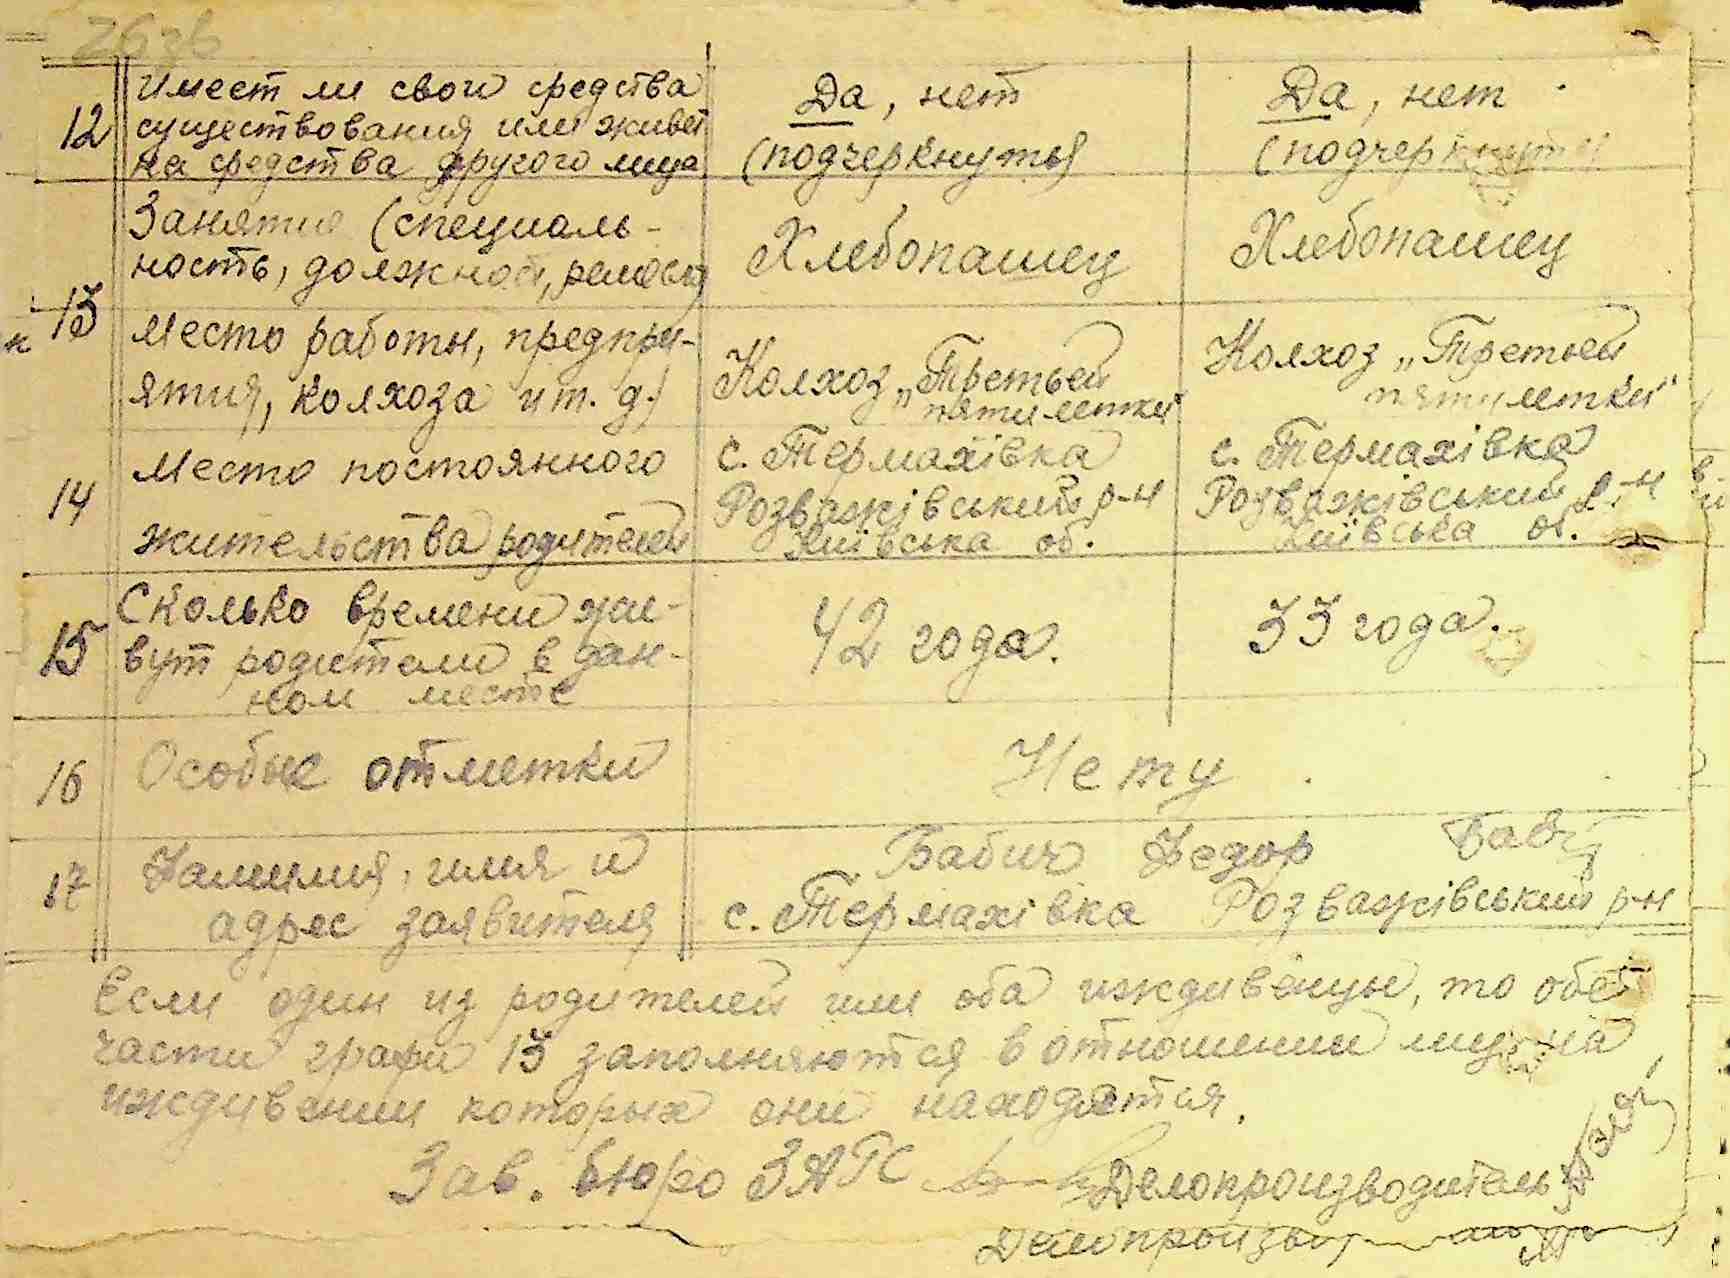 12
Имеет ли свои средства
существования или живет
на средства другого лица
Да, нет
(подчеркнуть)
Да, нет
(подчеркнуть)
13
Занятие (специаль-
ность, должность, ремесло)
Хлебопашец
Хлебопашец
Место работы, предпри-
ятия, колхоза и т. д.)
Колхоз „Третьей
пятилетки"
Колхоз „Третьей
пятилетки"
14
Место постоянного
жительства родителей
с. Термахівка
Розважівський р-н
Київська об.
с. Термахівка
Розважівський р-н
Київська об.
15
Сколько времени жи-
вут родители в дан-
ном месте
42 года.
33 года.
16
Особые отметки
Нету
17
Фамилия, имя и
адрес заявителя
Бабич Федор
с. Термахівка Розважівський р-н
Если один из родителей или оба иждивенцы, то обе
части графи 13 заполняются в отношении лиц на
иждивении которых они находятся.
Зав. бюро ЗАГС Делопроизводитель